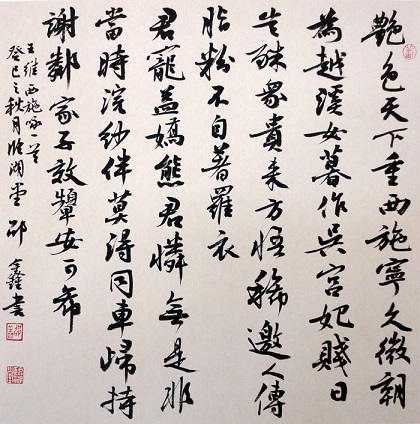 艷色天下重西施寧久微朝
為越溪女暮作吳宮妃賤日
豈殊眾貴來方悟稀邀人傅
脂粉不自著羅衣
君寵益嬌態君憐無是非
當時浣紗伴莫得同車歸持
謝鄰家子效顰安可希
王維西施咏一首
癸巳之秋月堂邵鑫書